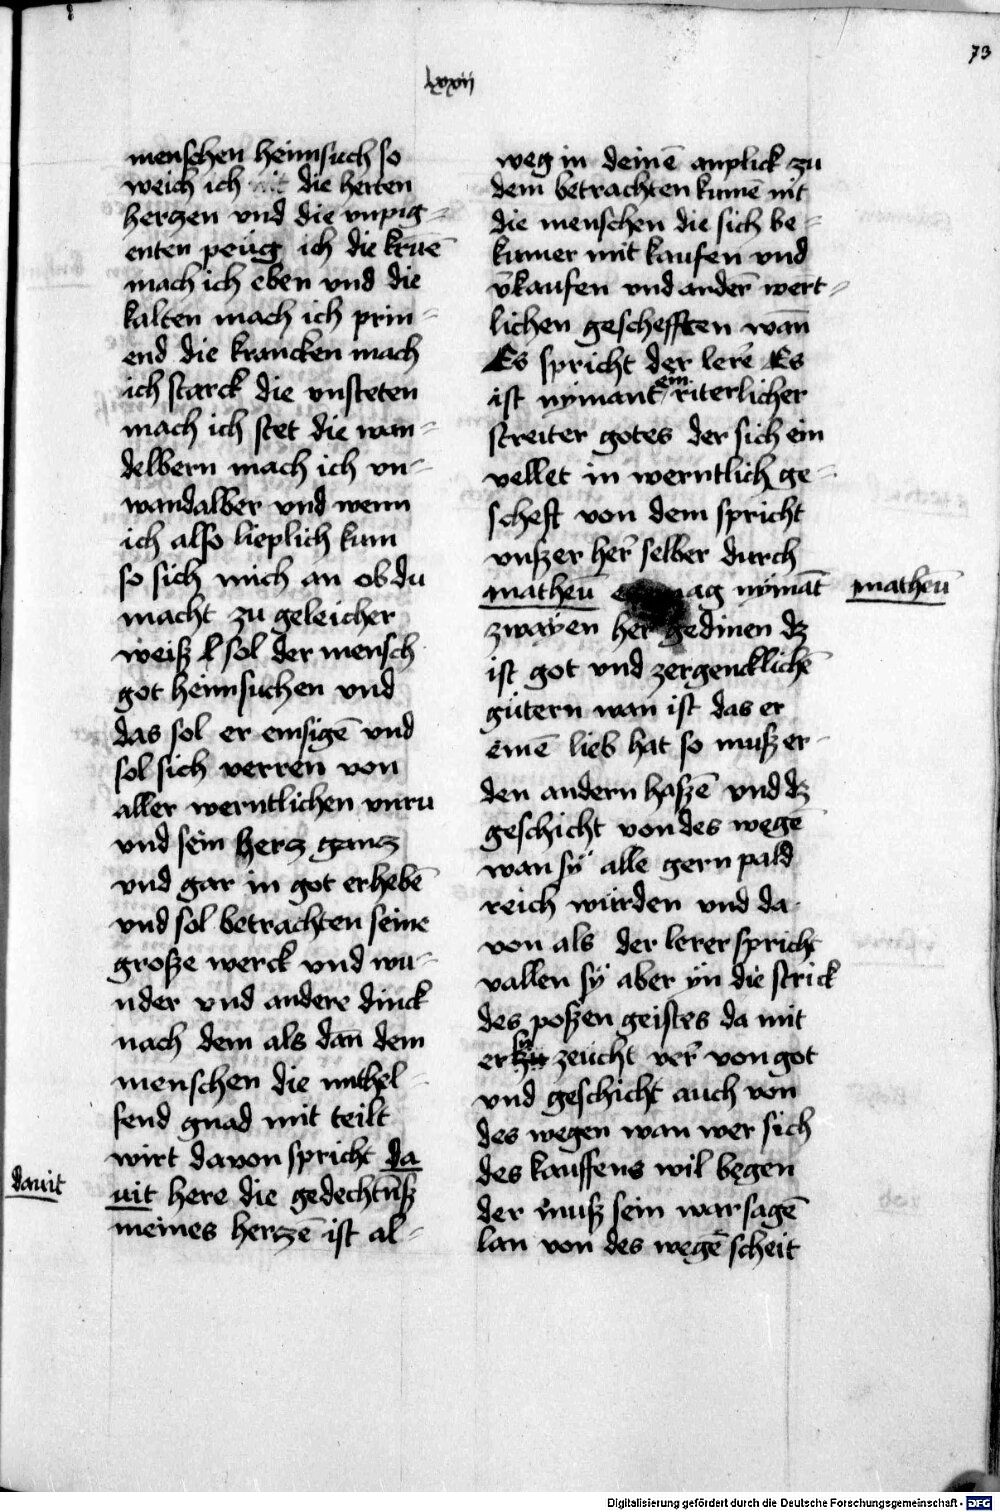 73
lxxij
menschen heimsuch so
weich ich mit die herten
hertzen vnd die vnpig-
enten peüg ich die krūē
mach ich eben vnd die
kalten mach ich prin-
end die krancken mach
ich starck die vnsteten
mach ich stet die wan-
delbern mach ich vn-
wandalber vnd wenn
ich also lieplich kum
so sich mich an ob du
macht zu geleicher
weiß sol der mensch
got heimsuchen vnd
das sol er emsigē vnd
sol sich verren von
aller werntlichen vnru
vnd sein hertz gantz
vnd gar in got erhebē
vnd sol betrachten seine
große werck vnd wu-
nder vnd andere dinck
nach dem als dan̄ dem
menschen die mithel-
fend gnad mit teilt
wirt davon spricht da
uit here die gedechtn̄ß
meines hertzē ist al-
dauit
weg in deinē anplick zu
dem betrachten kumē nit
die menschen die sich be-
kumer mit kaufen vnd
v̄kaufen vndander̄ wert-
lichen geschefften wan̄
Es spricht der lerē Es
ist nymant em riterlicher
streiter gotes der sich ein
vellet in werntlich ge-
scheft von dem spricht
vnßer her̄ selber durch
matheū mag nymāt
matheū
zwayen her gedinen dz
ist got vnd zergencklichē
gütern wan ist das er
einē lieb hat so muß er
den andern haßē vnd dz
geschicht von des wegē
wan sy alle gern pald
reich würden vnd da
von als der lerer spricht
vallen sy aber yn die strick
des poßen geistes da mit
er sy zeücht ver̄ von got
vnd geschicht auch von
des wegen wan wer sich
des kauffens wil begen
der muß sein warsagē
lan von des wegē scheit
Digitalisierung gefördert durch die Deutsche Forschungsgemeinschaft - DFG